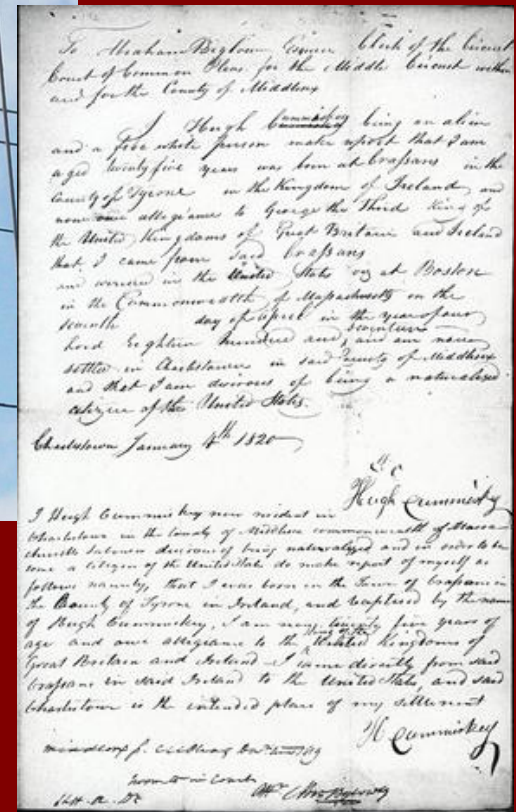 To Abraham Bigelow, Esquire Clerk of the Circuit
Court of Common Pleas for the Middle Circuit within
and for the County of Middlesex
I Hugh Cummiskey being an alien
and a free white person make report that I am
aged twenty five years was born at Crossans in the
County of Tyrone in the Kingdom of Ireland, and
now owe allegiance to George the Third King of
the United Kingdoms of Great Britain and Ireland
that I came from said Crossans
and arrived in the United States at Boston
in the Commonwealth of Massachusetts on the
seventh day of April in the year of our
Lord Eighteen hundred and seventeen and am now
settled in Charlestown in said County of Middlesex
and that I am desirous of being a naturalized
citizen of the United States.
Charlestown January 4th 1820
Hugh Cummisky
I Hugh Cummiskey now resident in
Charlestown in the County of Middlesex commonwealth of Massa
chusetts Laborer desirous of being naturalized and in order to be
come a citizen of the United States do make report of myself as
follows namely, that I was born in the Town of Crossans in
the County of Tyrone in Ireland, and baptised by the name
of Hugh Cummiskey, I am now twenty five years of
age and owe allegiance to the King of the United Kingdoms of
Great Britain and Ireland I came directly from said
Crossans in said Ireland to the United States, and said
Charlestown is the intended place of my settlement
H Cummiskey
Middlesex ss. 1819
Sworn to in Court